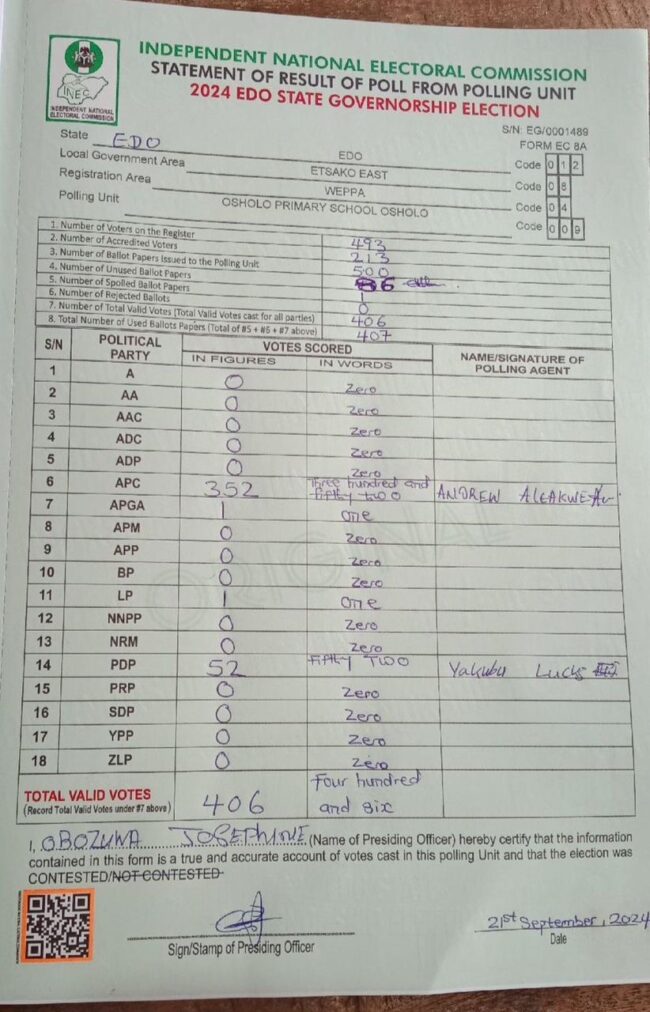 INDEPENDENT NATIONAL ELECTORAL COMMISSION
STATEMENT OF RESULT OF POLL FROM POLLING UNIT
2024 EDO STATE GOVERNORSHIP ELECTION
INEC
INDEPENDENT NATIONAL
ELECTORAL COMMISSION
S/N: EG/0001489
FORM EC 8A
State EDO EDO Code 0 1 2
Local Government Area ETSAKO EAST Code 0 8
Registration Area WEPPA Code 0 4
Polling Unit OSHOLO PRIMARY SCHOOL OSHOLO Code 0 0 9
1. Number of Voters on the Register 493
2. Number of Accredited Voters 213
3. Number of Ballot Papers Issued to the Polling Unit 500
4. Number of Unused Ballot Papers
5. Number of Spoiled Ballot Papers 1
6. Number of Rejected Ballots 0
7. Number of Total Valid Votes (Total Valid Votes cast for all parties) 406
8. Total Number of Used Ballots Papers (Total of #5 + #6 + #7 above) 407
S/N POLITICAL PARTY VOTES SCORED NAME/SIGNATURE OF POLLING AGENT
IN FIGURES IN WORDS
1 A 0 Zero
2 AA 0 Zero
3 AAC 0 Zero
4 ADC 0 Zero
5 ADP 0 Zero
6 APC 352 Three hundred and fifty two ANDREW
7 APGA 1 one
8 APM 0 Zero
9 APP 0 Zero
10 BP 0 Zero
11 LP 1 one
12 NNPP 0 Zero
13 NRM 0 Zero
14 PDP 52 Fifty Two Yakubu
15 PRP 0 Zero
16 SDP 0 Zero
17 YPP 0 Zero
18 ZLP 0 Zero
ORIGINAL
TOTAL VALID VOTES 406 Four hundred
(Record Total Valid Votes under #7 above) and six
I, OBOZUWA JOSEPHINE (Name of Presiding Officer) hereby certify that the information
contained in this form is a true and accurate account of votes cast in this polling Unit and that the election was
CONTESTED/NOT CONTESTED
21st September, 2024
Sign/Stamp of Presiding Officer Date